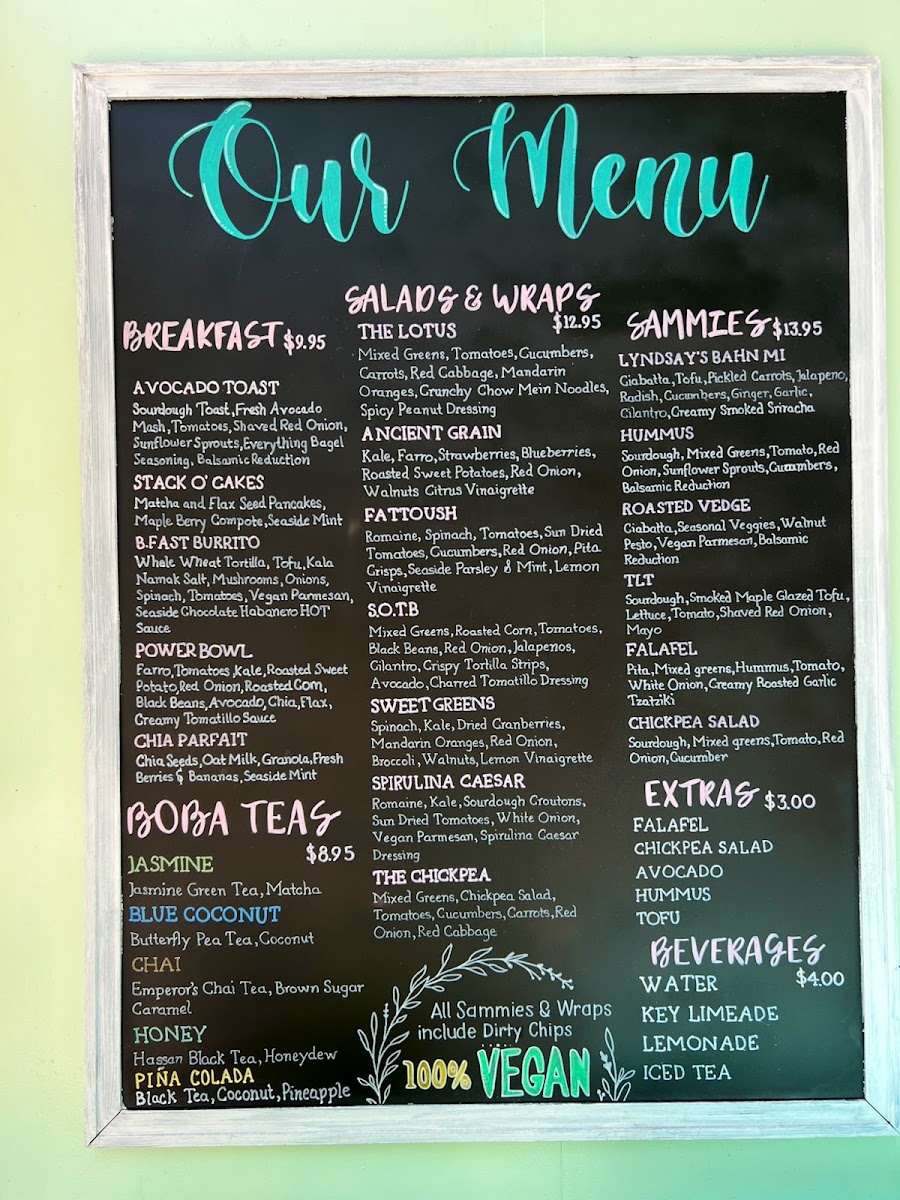 Our Menu
BREAKFAST $9.95
AVOCADO TOAST
Sourdough Toast, Fresh Avocado
Mash, Tomatoes, Shaved Red Onion,
Sunflower Sprouts, Everything Bagel
Seasoning, Balsamic Reduction
STACK O' CAKES
Matcha and Flax Seed Pancakes,
Maple Berry Compote, Seaside Mint
B.FAST BURRITO
Whole Wheat Tortilla, Tofu, Kala
Namak Salt, Mushrooms, Onions,
Spinach, Tomatoes, Vegan Parmesan,
Seaside Chocolate Habanero HOT
Sauce
POWER BOWL
Farro, Tomatoes, Kale, Roasted Sweet
Potato, Red Onion, Roasted Corn,
Black Beans, Avocado, Chia, Flax,
Creamy Tomatillo Sauce
CHIA PARFAIT
Chia Seeds, Oat Milk, Granola, Fresh
Berries & Bananas, Seaside Mint
BOBA TEAS
$8.95
JASMINE
Jasmine Green Tea, Matcha
BLUE COCONUT
Butterfly Pea Tea, Coconut
CHAI
Emperor's Chai Tea, Brown Sugar
Caramel
HONEY
Hassan Black Tea, Honeydew
PIÑA COLADA
Black Tea, Coconut, Pineapple
SALADS & WRAPS
$12.95
THE LOTUS
Mixed Greens, Tomatoes, Cucumbers,
Carrots, Red Cabbage, Mandarin
Oranges, Crunchy Chow Mein Noodles,
Spicy Peanut Dressing
ANCIENT GRAIN
Kale, Farro, Strawberries, Blueberries,
Roasted Sweet Potatoes, Red Onion,
Walnuts Citrus Vinaigrette
FATTOUSH
Romaine, Spinach, Tomatoes, Sun Dried
Tomatoes, Cucumbers, Red Onion, Pita
Crisps, Seaside Parsley & Mint, Lemon
Vinaigrette
S.O.T.B
Mixed Greens, Roasted Corn, Tomatoes,
Black Beans, Red Onion, Jalapenos,
Cilantro, Crispy Tortilla Strips,
Avocado, Charred Tomatillo Dressing
SWEET GREENS
Spinach, Kale, Dried Cranberries,
Mandarin Oranges, Red Onion,
Broccoli, Walnuts, Lemon Vinaigrette
SPIRULINA CAESAR
Romaine, Kale, Sourdough Croutons,
Sun Dried Tomatoes, White Onion,
Vegan Parmesan, Spirulina Caesar
Dressing
THE CHICKPEA
Mixed Greens, Chickpea Salad,
Tomatoes, Cucumbers, Carrots, Red
Onion, Red Cabbage
All Sammies & Wraps
include Dirty Chips
100% VEGAN
SAMMIES $13.95
LYNDSAY'S BAHN MI
Ciabatta, Tofu, Pickled Carrots, Jalapeno,
Radish, Cucumbers, Ginger, Garlic,
Cilantro, Creamy Smoked Sriracha
HUMMUS
Sourdough, Mixed Greens, Tomato, Red
Onion, Sunflower Sprouts, Cucumbers,
Balsamic Reduction
ROASTED VEDGE
Ciabatta, Seasonal Veggies, Walnut
Pesto, Vegan Parmesan, Balsamic
Reduction
TLT
Sourdough, Smoked Maple Glazed Tofu,
Lettuce, Tomato, Shaved Red Onion,
Mayo
FALAFEL
Pita, Mixed greens, Hummus, Tomato,
White Onion, Creamy Roasted Garlic
Tzatziki
CHICKPEA SALAD
Sourdough, Mixed greens, Tomato, Red
Onion, Cucumber
EXTRAS $3.00
FALAFEL
CHICKPEA SALAD
AVOCADO
HUMMUS
TOFU
BEVERAGES
$4.00
WATER
KEY LIMEADE
LEMONADE
ICED TEA